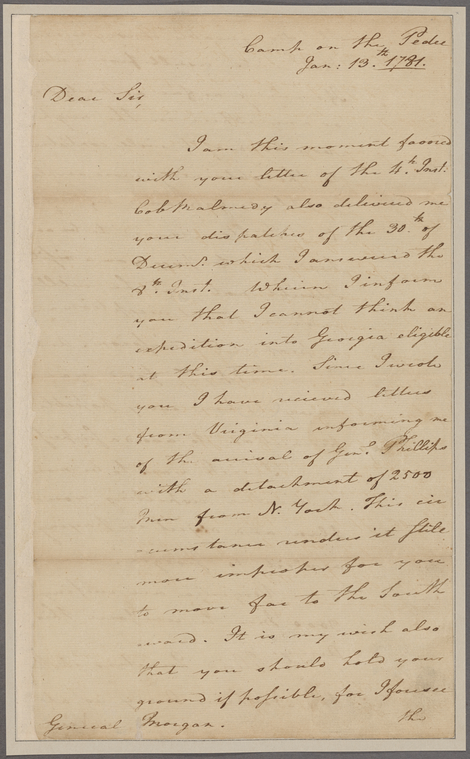 Camp on the Pedee
Jan: 13.th 1781.
Dear Sir,
I am this moment favored
with your letter of the 4.th Inst:
Col.o Malmedy also delivered me
your dispatches of the 30.th of
Decem.r which I answered the
8.th Inst. Wherein I inform
you that I cannot think an
expedition into Georgia eligible
at this time. Since I wrote
you I have recieved letters
from Virginia informing me
of the arrival of Gen.l Phillips
with a detachment of 2500
Men from N. York. This cir
-cumstance renders it still
more improper for you
to move far to the South
ward. It is my wish also
that you should hold your
ground if possible, for I foresee
the
General Morgan.